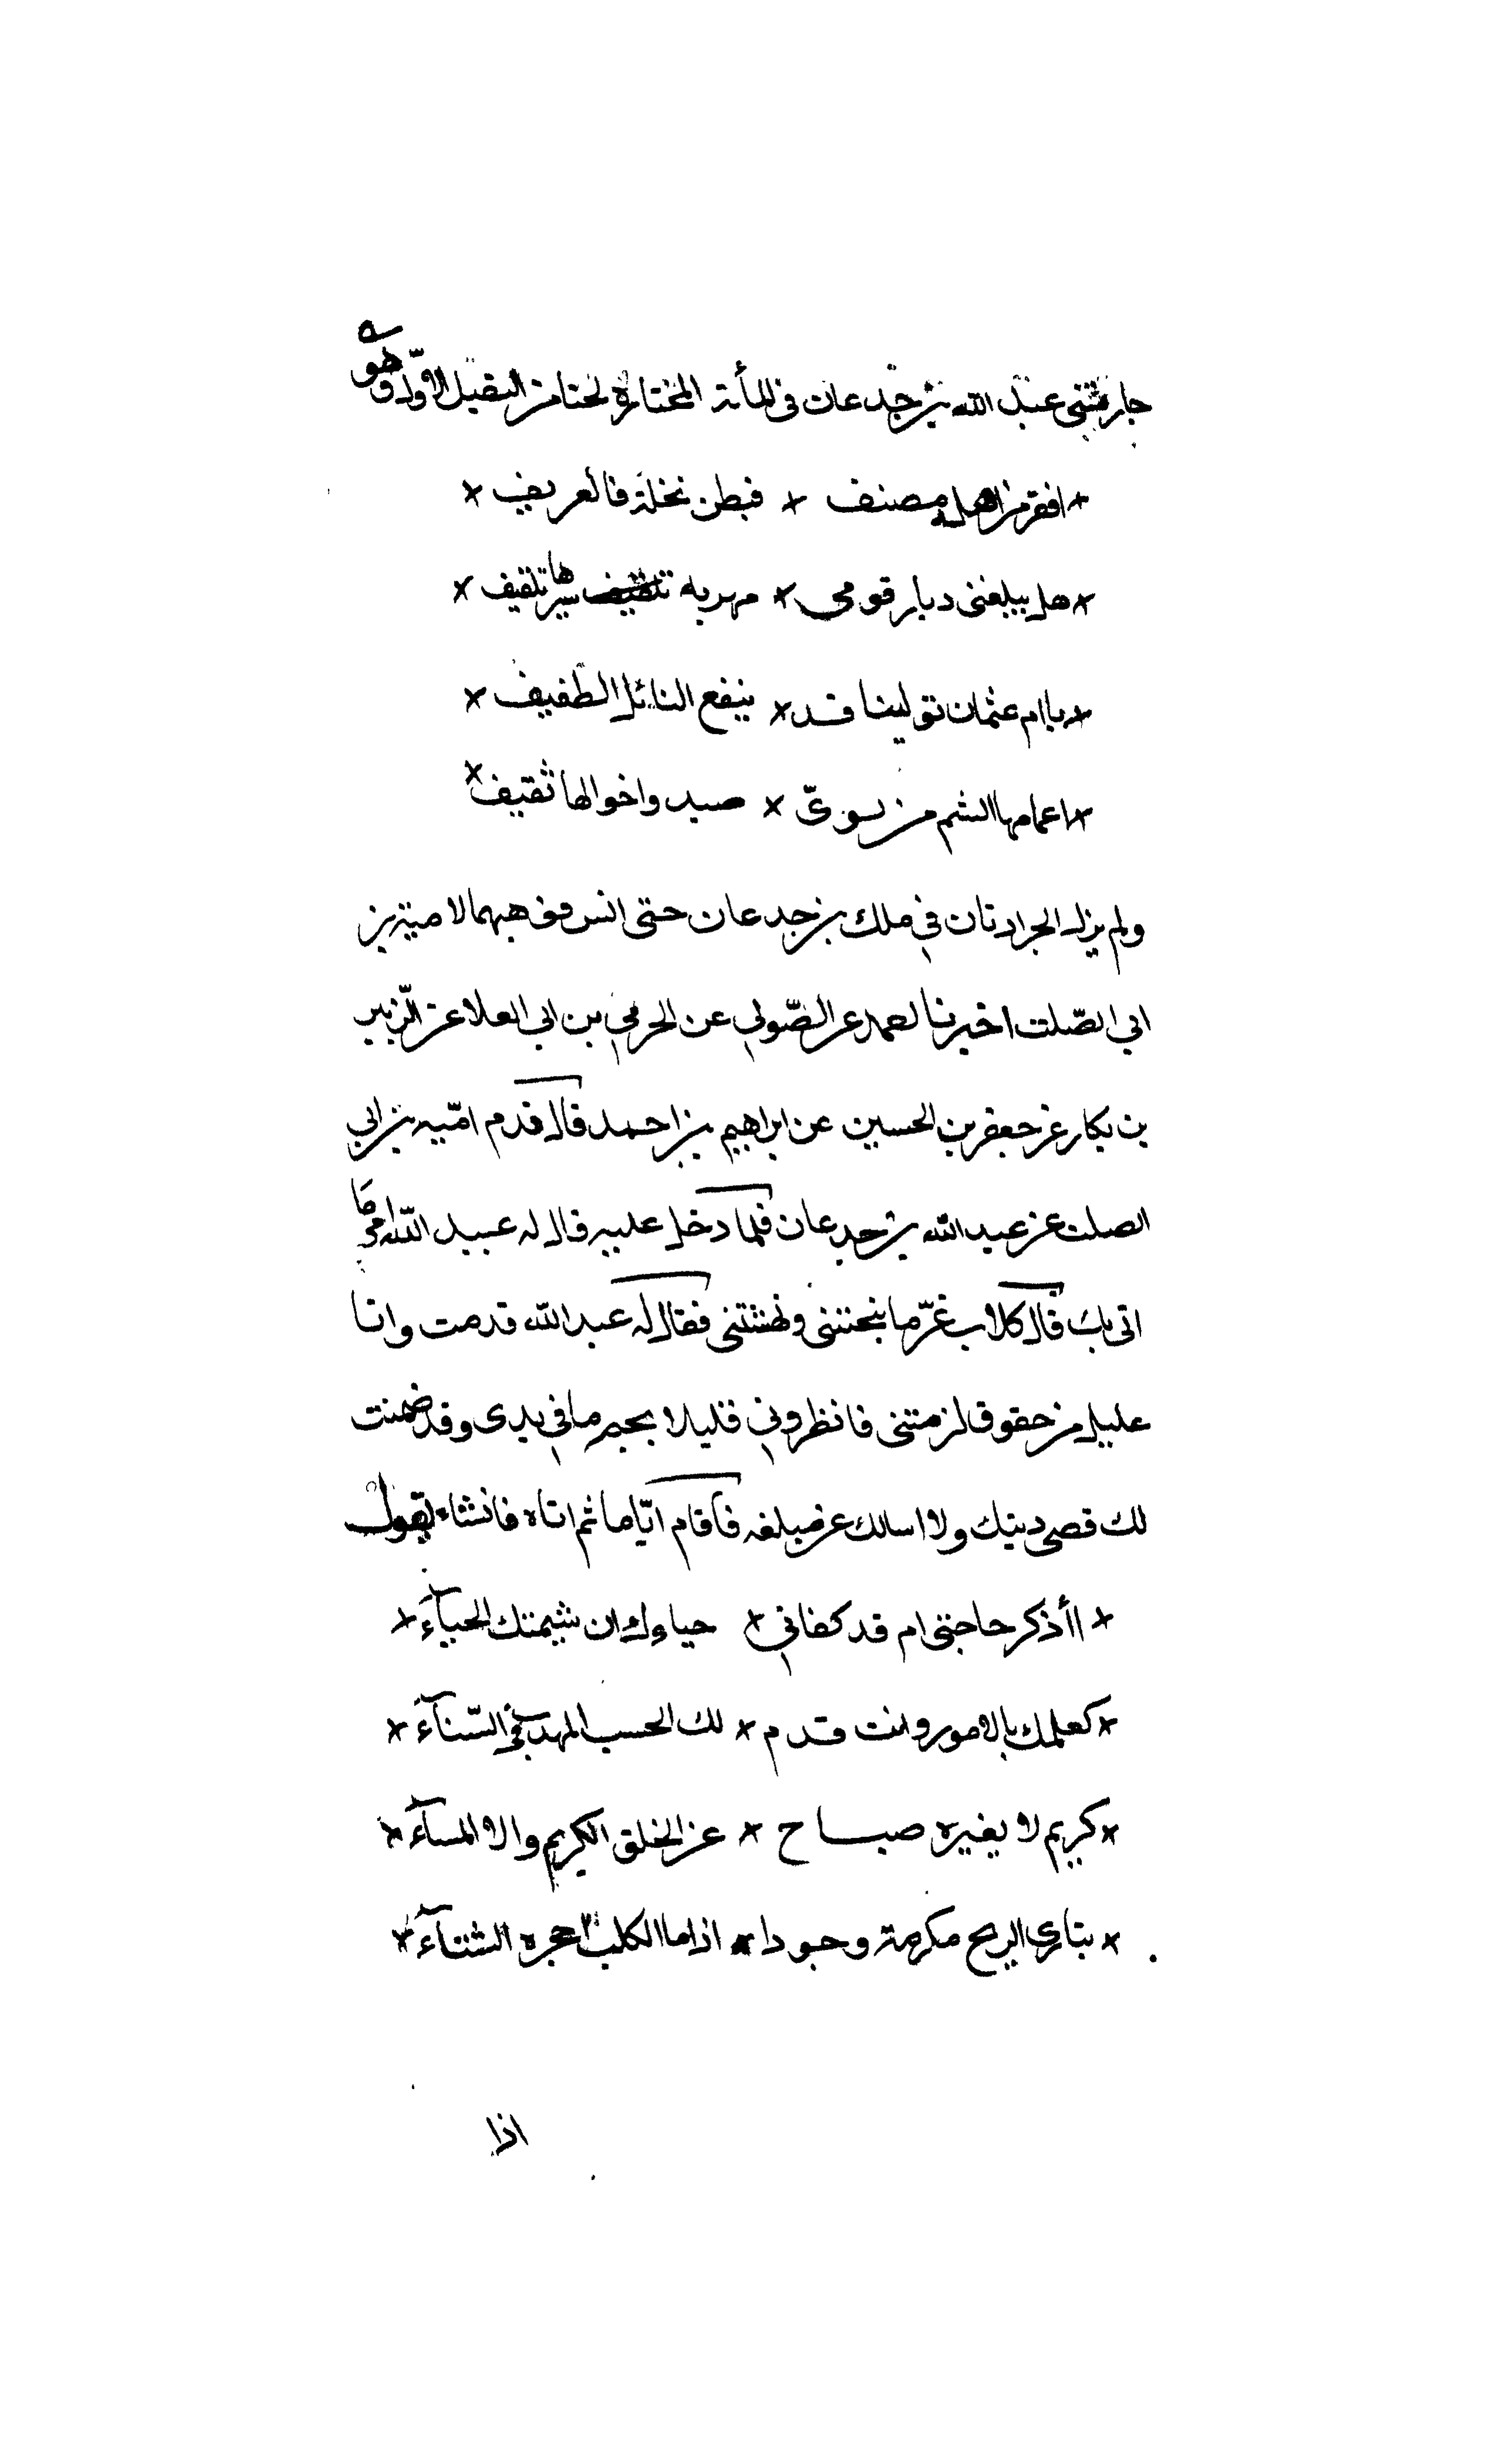 جاريتي عبد الله بن جدعان في المأتة المختارة لحنا من الثقيل الاول وهو
* اقفر من اهله مصنف * فبطن نخلة فالعريف *
* هل يبلغني ديار قومي * مهرية سيرها تلقيف *
* يا ام عثمان نولينا قد * ينفع النائل الطفيف *
* اعمامها الشم من لوىّ * صيد واخوالها ثقيف *
ولم يزل الجرادتان في ملك بن جدعان حتى انس فوهبهما لامية بن
ابي الصّلت اخبرنا عن الصّولي عن الحرمي بن ابي العلا عن الّزبير
بن بكار عن جعفر بن الحسين عن ابراهيم بن احمد قال قدم امّيه بن ابي
الصلت عن عبد الله بن جدعان فلما دخل عليه قال له عبد الله امر ما
اتى بك قال كلاب غرّما نبحتنى ونهشتنى فقال له عبد الله قدمت وانا
عليل من حقوق لزمتنى فانظروني قليلا يجبر ما في يدى وقد ضمنت
لك قصى دينك ولا اسالك عن مبلغه فاقام ايّاما ثم اتاه فانشاء يقول
* اأذكر حاجتي ام قد كفاني * حياوك ان شيمتك الحيآء *
* كعلمك بالامور وانت قدم * لك الحسب المهدب في السّنآء *
* كريم لا يغيره صباح * عن الخلق الكريم والا المسآء *
* يتاري الريح مكرمة وجودا * اذا ما الكلب احجره الشتآء *
اذا